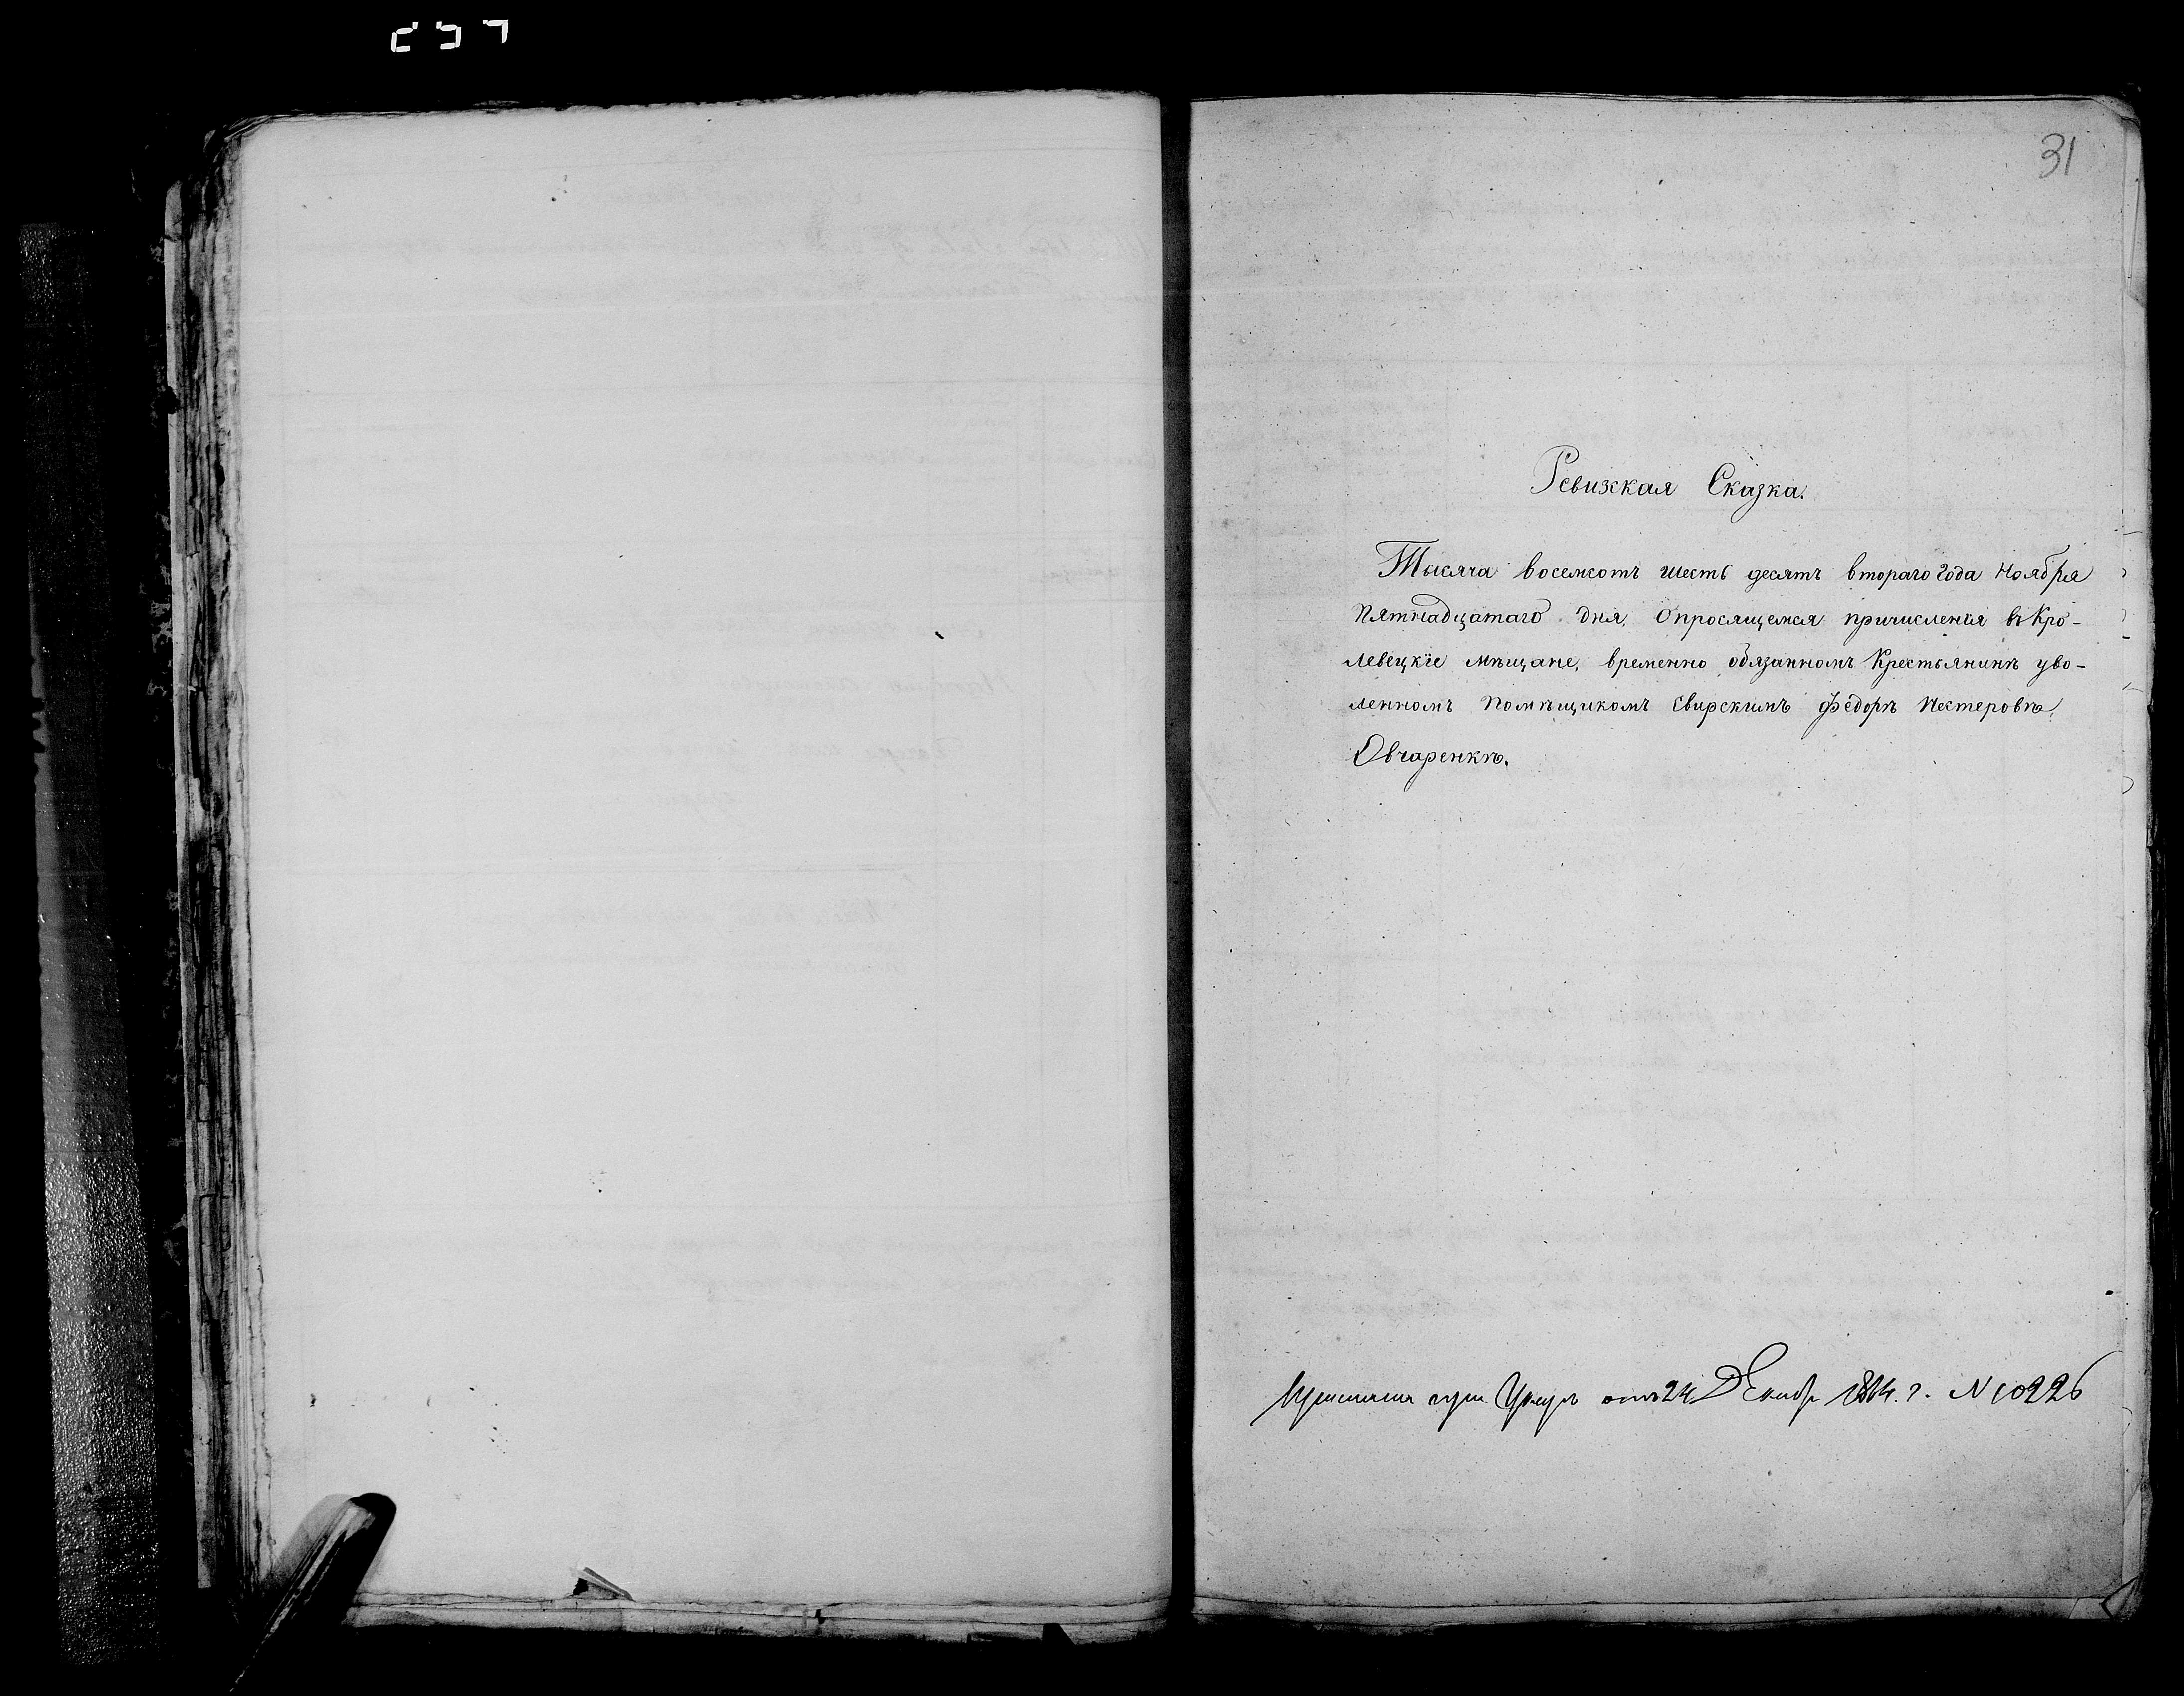 31
Ревизская Сказка.
Тысяча восемсотъ шестъ десятъ втораго года Ноября
пятнадцатаго дня, о просящемся причисленія въ Кро-
левецкіе мѣщане, временно обязанномъ Крестьянинѣ уво-
ленномъ Помѣщикомъ Свирскимъ Федорѣ Нестеровѣ
Овчаренкѣ.
отъ 24 Декабр 1864. г. N 10226